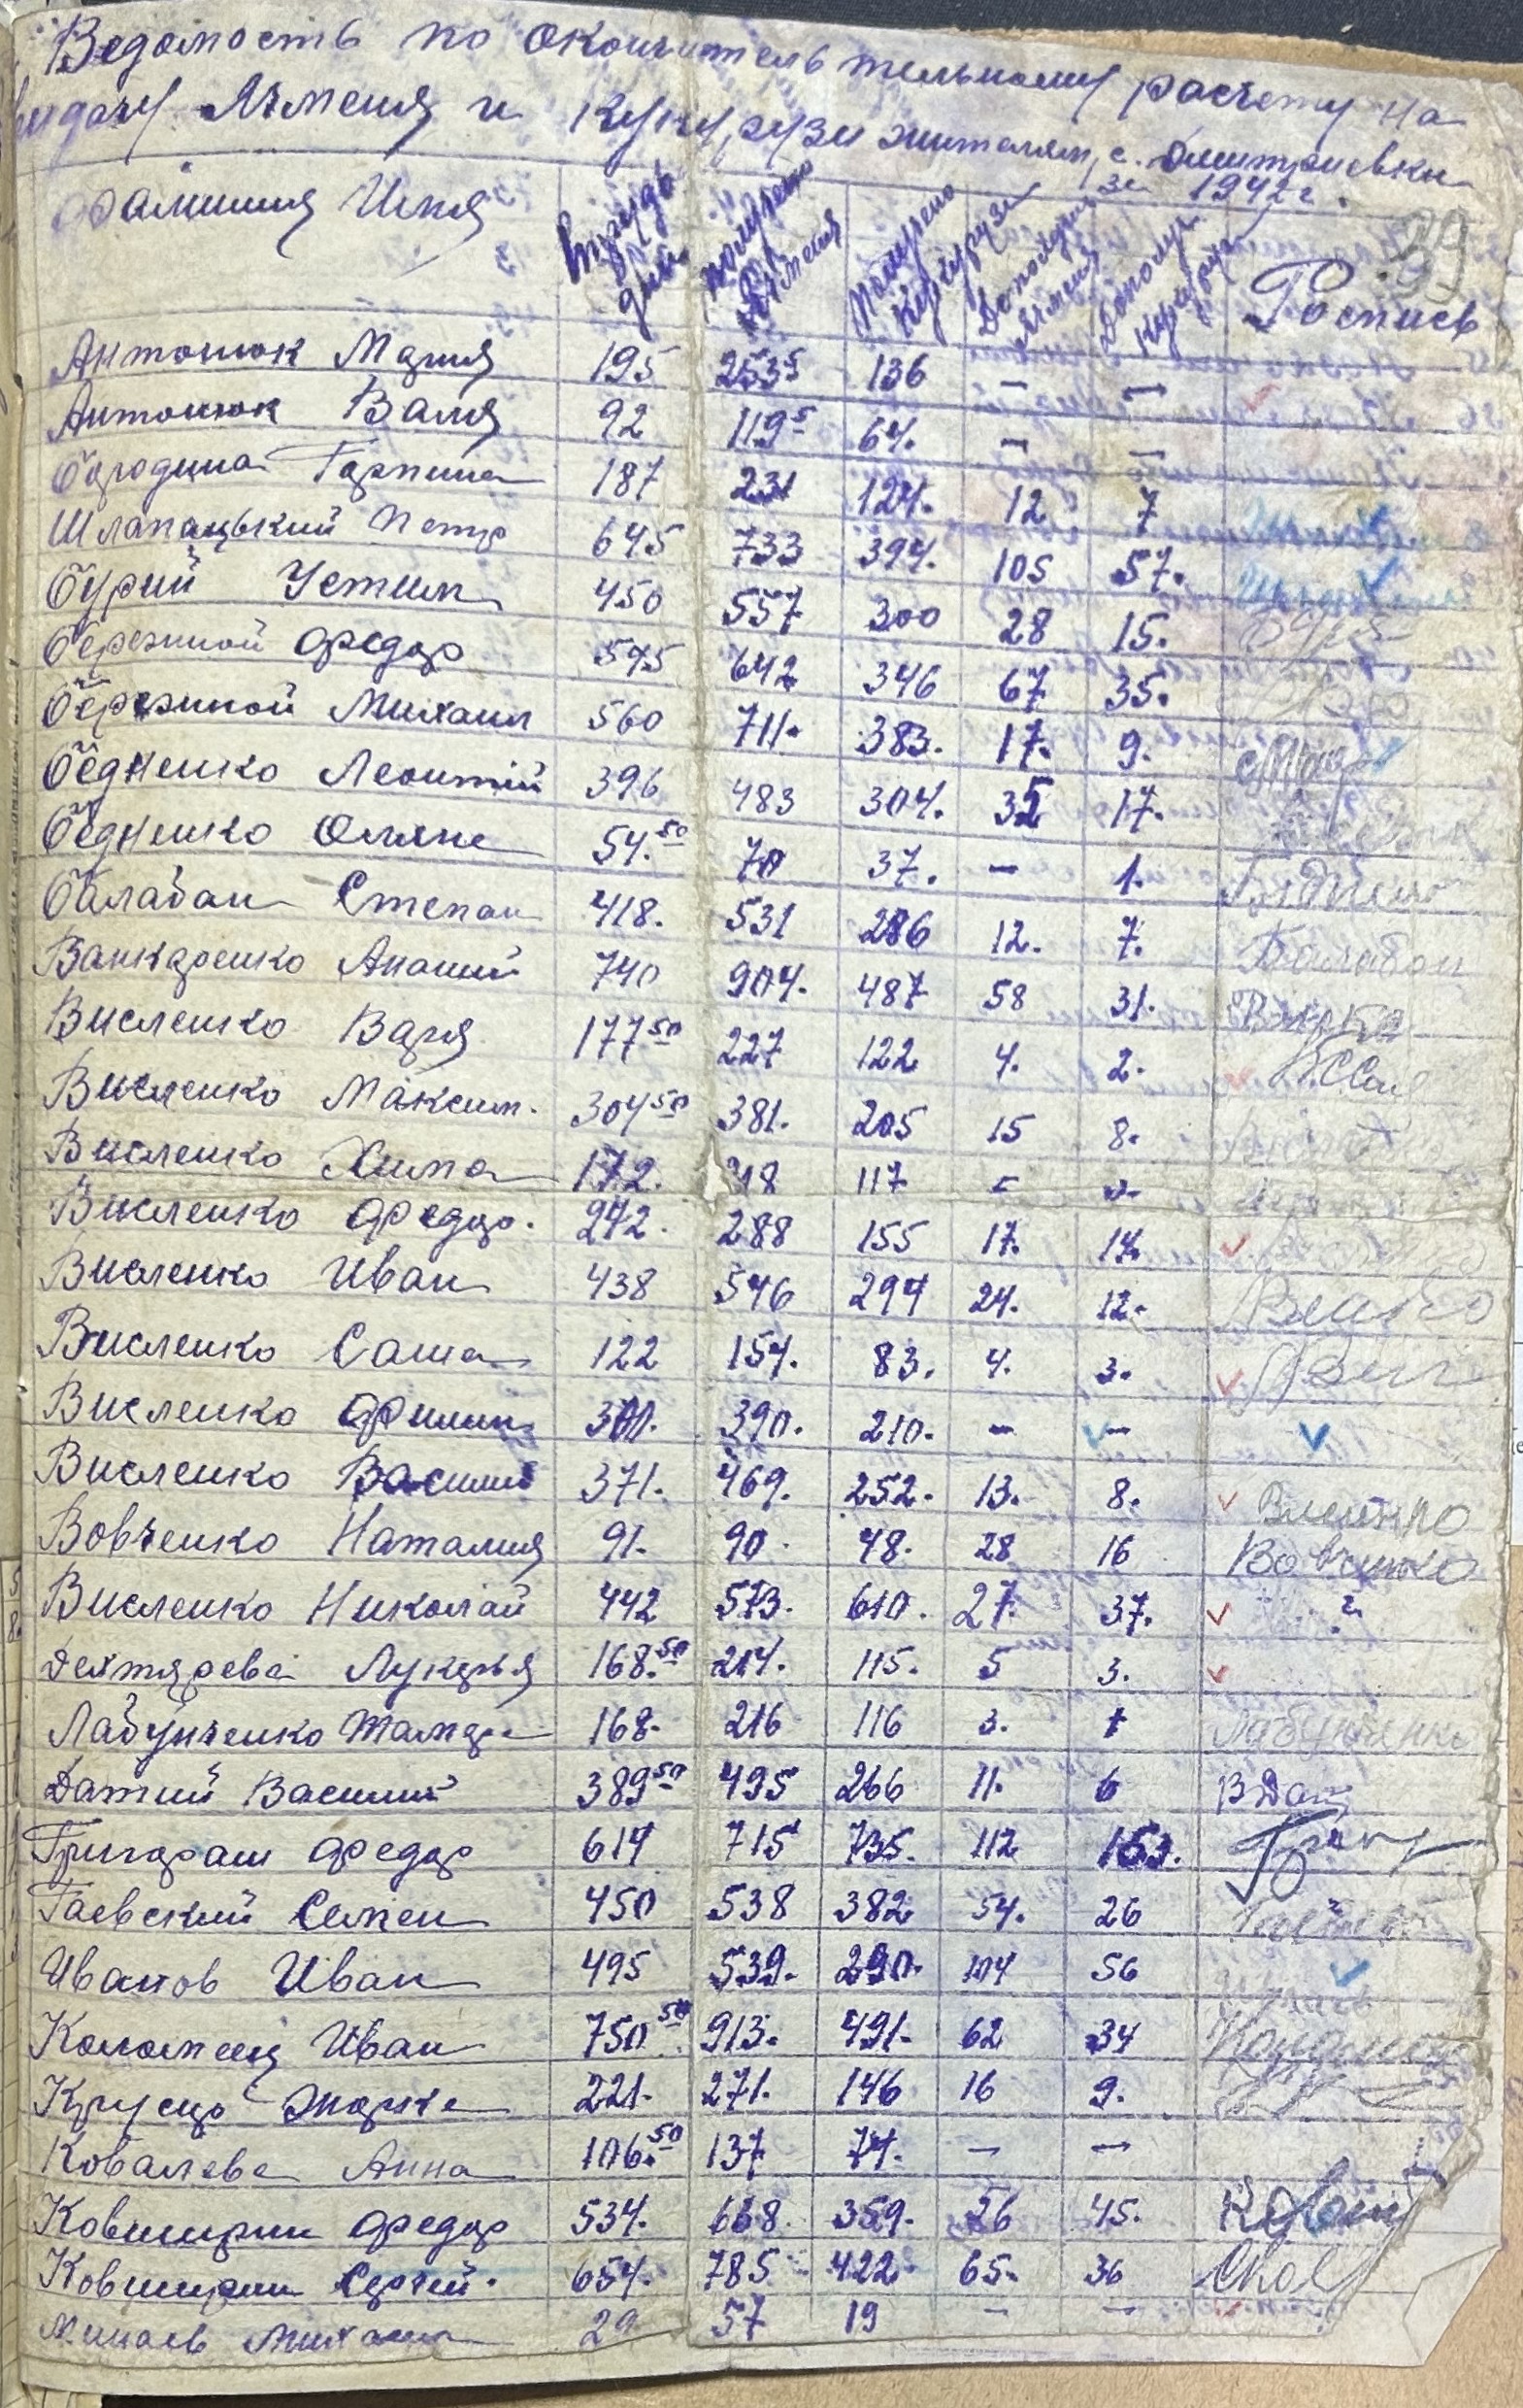 Ведомость по окончитель тельному расчету на
видачу Ячменя и Кукурузи жителям с. Дмитриевки
за 1942 г.
39
Фамилия Имя Втрудо дней Получено Ячменя Получено Кукурузи Дополуч. Ячменя Дополуч. Кукурузи Роспись
Антонюк Мария 195 253⁵ 136 — —
Антонюк Валя 92 119⁵ 64. — —
Бородина Гарпина 187 231 124. 12 7
Шлапацький Петр 645 733 394. 105 57.
Бурий Устим 450 557 300 28 15.
Бережной Федор 545 642 346 67 35.
Бережной Михаил 560 711. 383. 17. 9.
Бедненко Леонтій 396 483 304. 35 17.
Бедненко Оляна 54.50 70 37. — 1.
Балабан Степан 418. 531 286 12. 7. Балабан
Ванжренко Ананий 740 904. 487 58 31.
Висленко Варя 177 50 227 122 4. 2.
Висленко Максим. 304 50 381. 205 15 8.
Висленко Хима 172. 218 117
Висленко Федор. 242. 288 155 17. 14.
Висленко Иван 438 546 294 24. 12.
Висленко Саша 122 154. 83. 4. 3.
Висленко Филип 301. 390. 210. — —
Висленко Василий 371. 469. 252. 13. 8.
Вовченко Наталия 91. 90. 48. 28 16 Вовченко
Висленко Николай 442 573. 610. 27. 37.
Дехтярева Лукерья 168.50 214. 115. 5 3.
Лабунченко Тамара 168. 216 116 3. 1 Лабунченко
Датий Василий 389 50 495 266 11. 6 В Дат
Григораш Федор 614 715 735. 112 153.
Гаевский Семен 450 538 382 54. 26
Иванов Иван 495 539. 290. 104 56
Коломеец Иван 750 50 913. 491. 62 34
Крусер Марка 221. 271. 146 16 9.
Ковалева Анна 106.50 137 74. — —
Ковширин Федор 534. 668. 359. 26 45.
Ковширин Сергей. 654. 785 422 65. 36
Минаев Михаил 29 57 19 — —